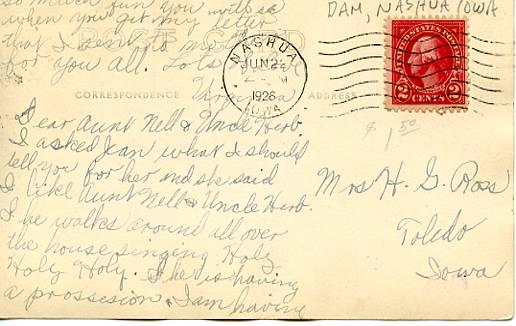 so much fun you will se
when you get my letter
that I sent to
for you all. Lots
Virginia
POST CARD
CORRESPONDENCE
ADDRESS
Dear Aunt Nell & Uncle Herb.
I asked Jean what I should
tell you for her and she said
I like Aunt Nell & Uncle Herb.
he walks around all over
the house singing Holy
Holy Holy. She is having
a prossesion. I am having
DAM, NASHUA IOWA
NASHUA
JUN 22
1926
IOWA
UNITED STATES POSTAGE
2 CENTS 2
$ 1.50
Mrs H. G. Ross
Toledo
Iowa